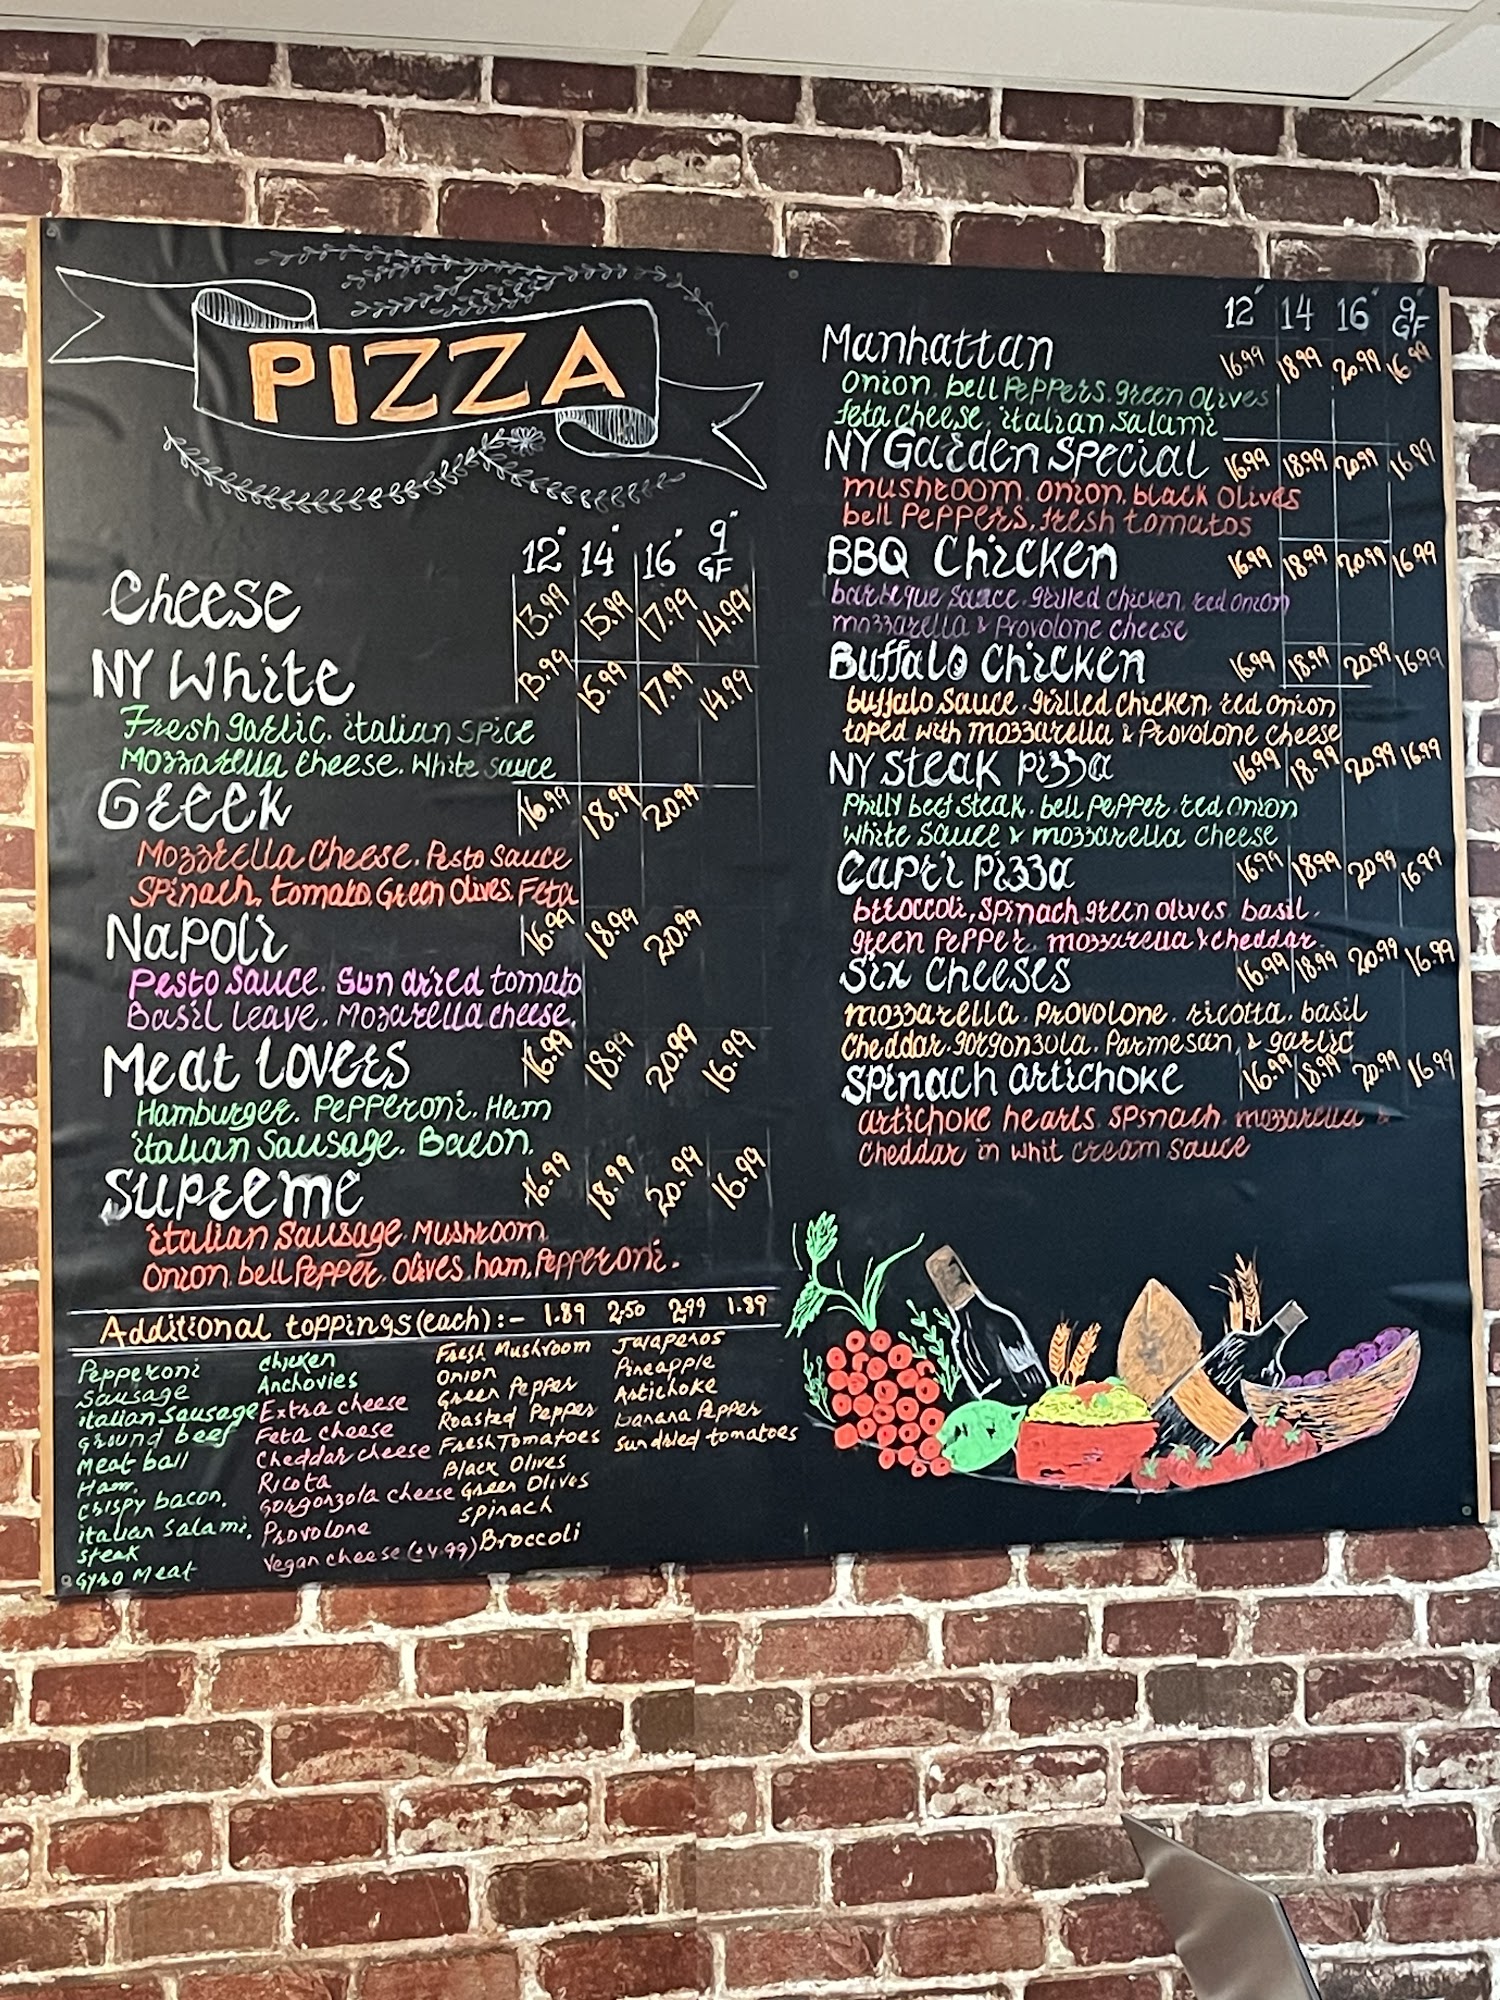 PIZZA
12" 14" 16" 9" GF
Cheese 13.99 15.99 17.99 14.99
NY White 13.99 15.99 17.99 14.99
Fresh garlic. italian spice
Mozzarella cheese. White sauce
Greek 16.99 18.99 20.99
Mozzrella Cheese. Pesto sauce
Spinach, tomato, Green Olives. Feta
Napoli 16.99 18.99 20.99
Pesto sauce. Sun dried tomato
Basil leave. Mozarella cheese.
Meat Lovers 16.99 18.99 20.99 16.99
Hamburger. Pepperoni. Ham
italian Sausage. Bacon.
Supreeme 16.99 18.99 20.99 16.99
italian Sausage. Mushroom
Onion, bell Pepper. Olives. ham. Pepperoni.
Additional toppings (each) :- 1.89 2.50 2.99 1.89
Pepperoni
Sausage
italian sausage
ground beef
Meat ball
Ham.
Crispy bacon.
italian Salami.
Steak
Gyro Meat
Chicken
Anchovies
Extra cheese
Feta cheese
Cheddar cheese
Ricota
Gorgonzola cheese
Provolone
Vegan cheese (+4.99)
Fresh Mushroom
Onion
Green Pepper
Roasted Pepper
Fresh Tomatoes
Black Olives
Green Olives
Spinach
Broccoli
Jalapenos
Pineapple
Artichoke
banana Pepper
Sun dried tomatoes
12" 14 16" 9" GF
Manhattan 16.99 18.99 20.99 16.99
Onion. bell Peppers. green Olives
feta cheese. italian Salami
NY Garden Special 16.99 18.99 20.99 16.99
mushroom. onion. black Olives
bell Peppers, fresh tomatos
BBQ Chicken 16.99 18.99 20.99 16.99
barbeque sauce. grilled chicken. red onion
mozzarella & Provolone cheese
Buffalo Chicken 16.99 18.99 20.99 16.99
buffalo Sauce. grilled chicken. red onion
toped with mozzarella & Provolone cheese
NY Steak Pizza 16.99 18.99 20.99 16.99
Philly beef steak. bell pepper. red onion
White sauce & mozzarella cheese
Capri Pizza 16.99 18.99 20.99 16.99
breoccoli, spinach green olives. basil.
green Pepper. mozzarella & cheddar.
Six Cheeses 16.99 18.99 20.99 16.99
mozzarella. Provolone. ricotta. basil
Cheddar. gorgonzola. Parmesan, & garlic
Spinach artichoke 16.99 18.99 20.99 16.99
artichoke hearts. spinach. mozzarella &
Cheddar in whit cream sauce